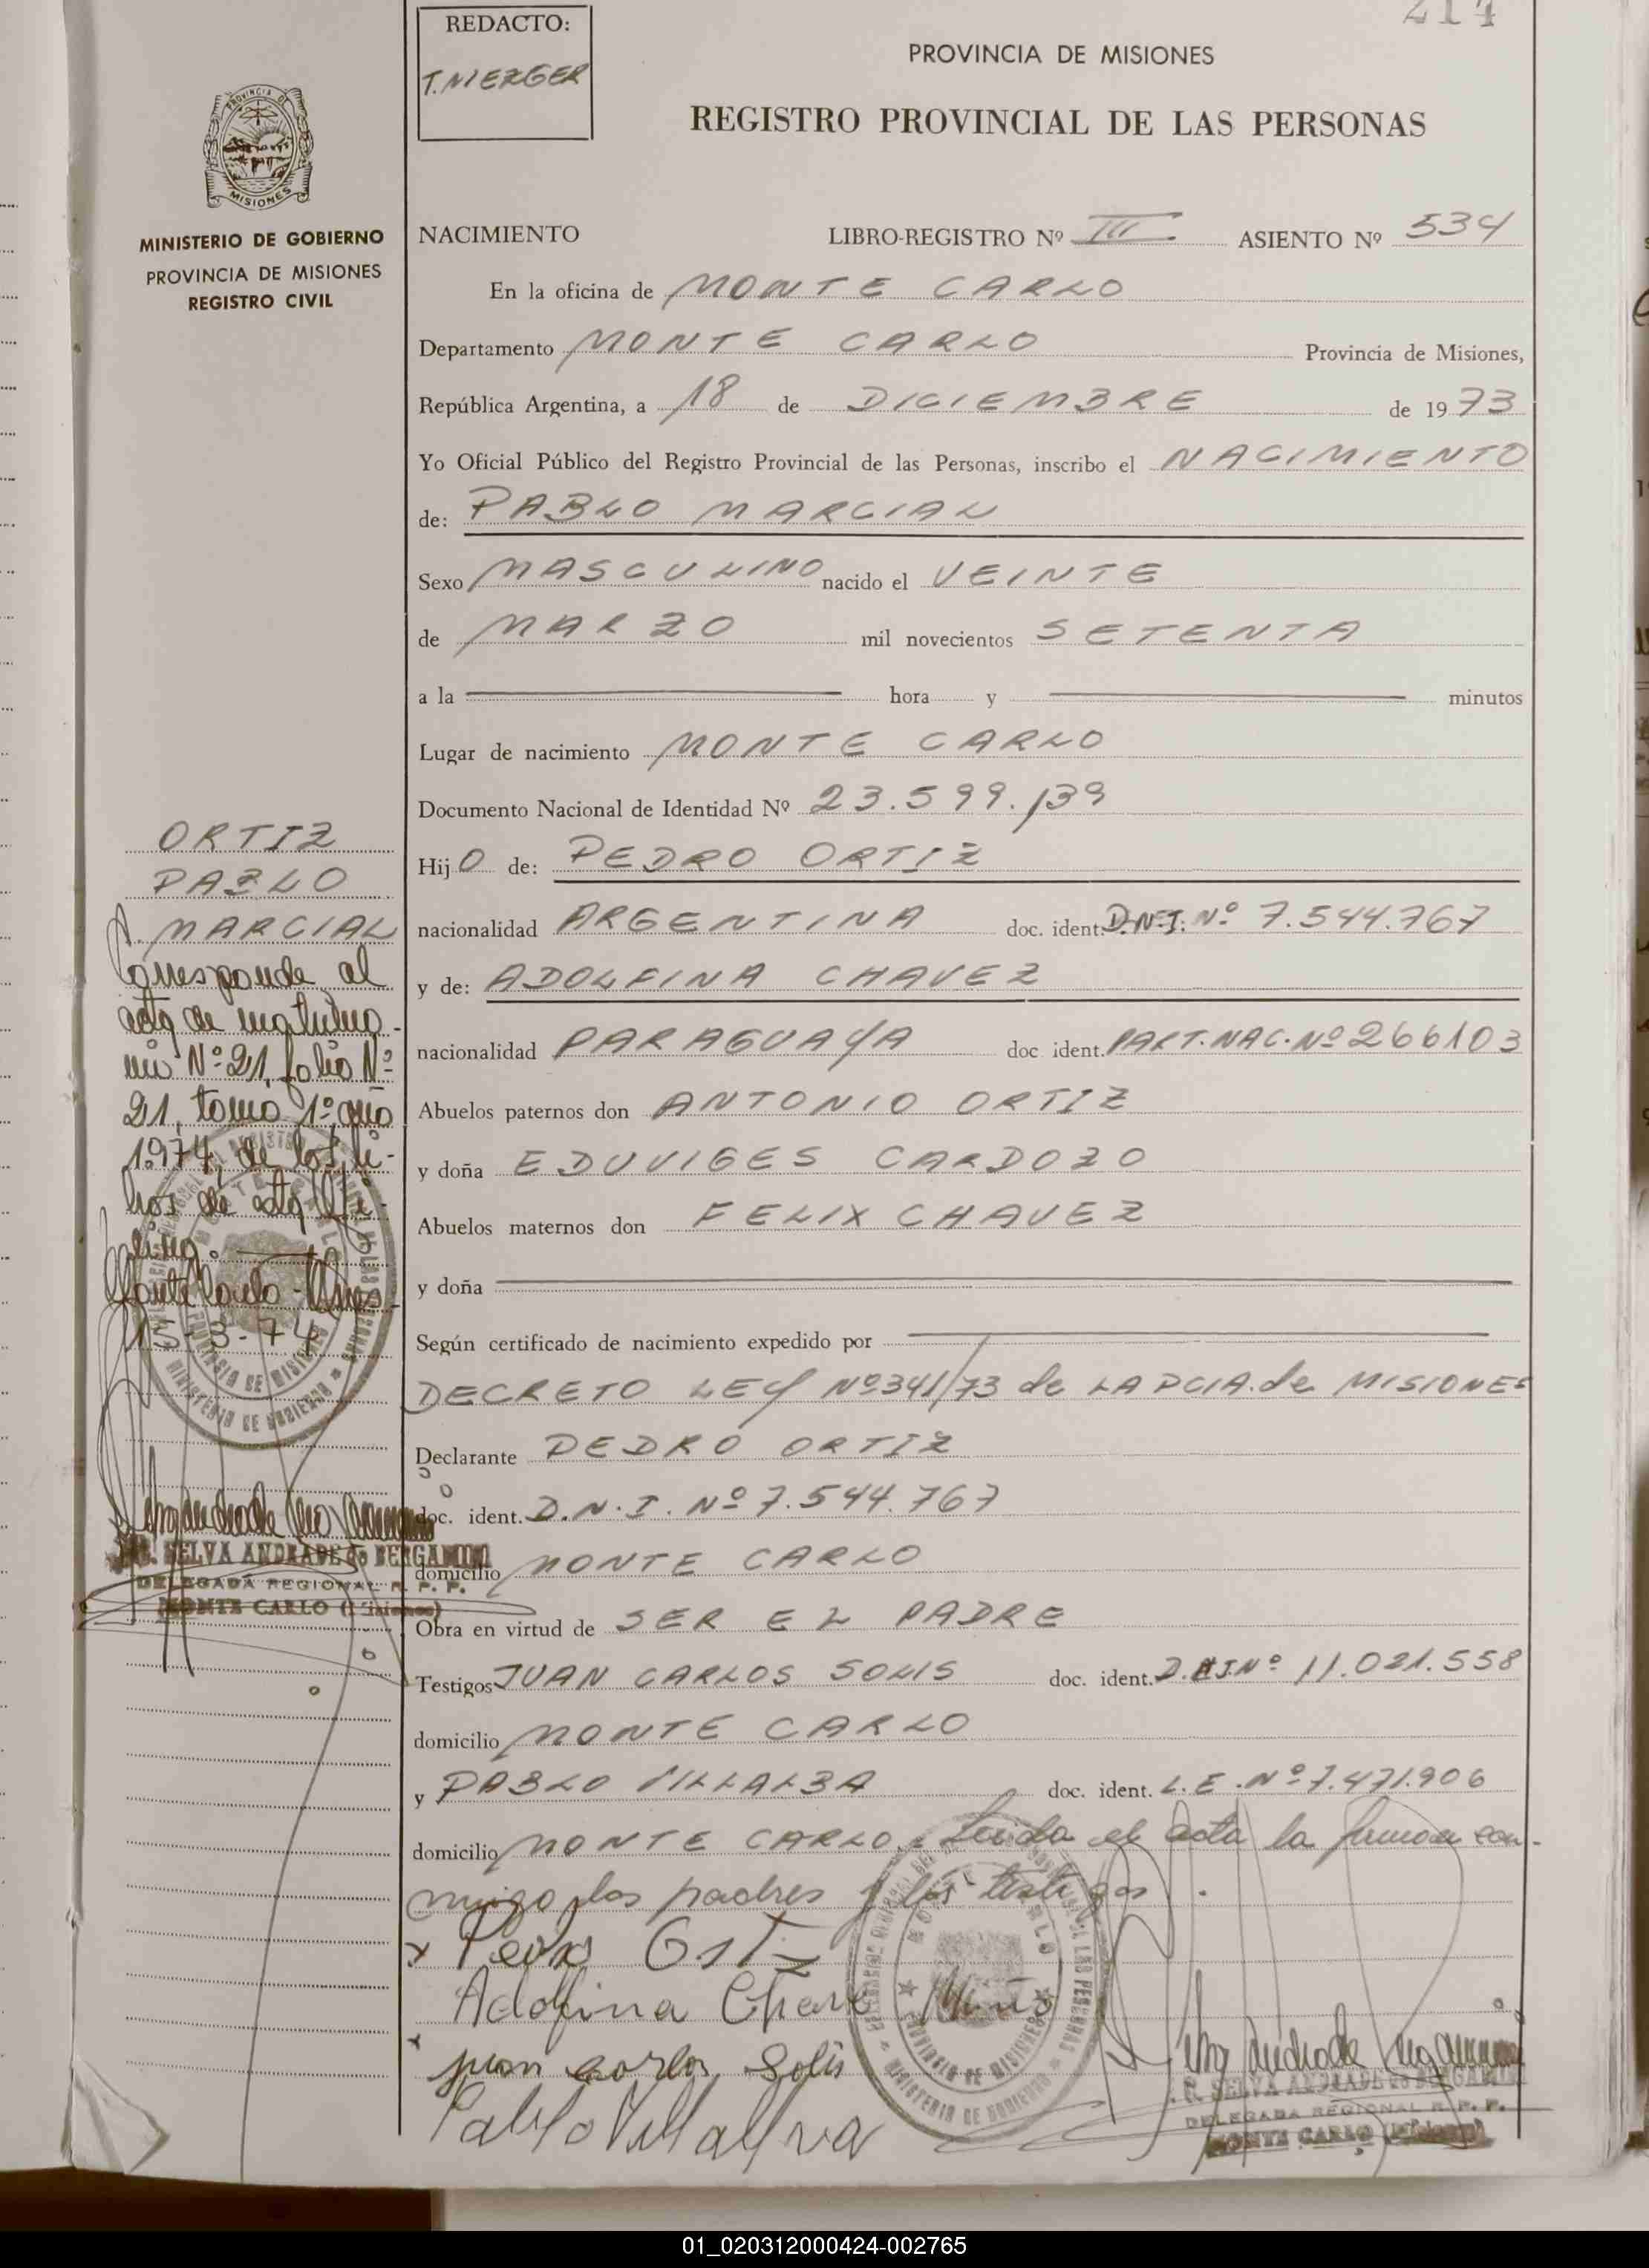 214
REDACTO:
T. NIEZGER
PROVINCIA DE MISIONES
REGISTRO PROVINCIAL DE LAS PERSONAS
PROVINCIA DE
MISIONES
MINISTERIO DE GOBIERNO
PROVINCIA DE MISIONES
REGISTRO CIVIL
NACIMIENTO LIBRO-REGISTRO Nº III ASIENTO Nº 534
En la oficina de MONTE CARLO
Departamento MONTE CARLO Provincia de Misiones,
República Argentina, a 18 de DICIEMBRE de 1973
Yo Oficial Público del Registro Provincial de las Personas, inscribo el NACIMIENTO
de: PABLO MARCIAL
Sexo MASCULINO nacido el VEINTE
de MARZO mil novecientos SETENTA
a la hora y minutos
Lugar de nacimiento MONTE CARLO
Documento Nacional de Identidad Nº 23.599.139
Hijo de: PEDRO ORTIZ
nacionalidad ARGENTINA doc. ident. D.N.I. Nº 7.544.767
y de: ADOLFINA CHAVEZ
nacionalidad PARAGUAYA doc ident. PART. NAC. Nº 266103
Abuelos paternos don ANTONIO ORTIZ
y doña EDUVIGES CARDOZO
Abuelos maternos don FELIX CHAVEZ
y doña
Según certificado de nacimiento expedido por
DECRETO LEY Nº 341/73 de LA PCIA. de MISIONES
Declarante PEDRO ORTIZ
doc. ident. D.N.I. Nº 7.544.767
domicilio MONTE CARLO
Obra en virtud de SER EL PADRE
Testigos JUAN CARLOS SOLIS doc. ident. D.N.I. Nº 11.021.558
domicilio MONTE CARLO
y PABLO VILLALBA doc. ident. L.E. Nº 7.471.906
domicilio MONTE CARLO. Leida el acta la firman con-
migo los padres y los testigos.
Pedro Ortiz
Adolfina Chave
juan carlos Solis
Pablo Villalva
SELVA ANDRADE de BERGAMINI
DELEGADA REGIONAL R. P. P.
MONTE CARLO (Misiones)
ORTIZ
PABLO
MARCIAL
Corresponde al
acta de matrimo-
nio Nº 21, folio Nº
21, tomo 1º año
1974, de los li-
bros de esta Ofi-
cina.
Monte Carlo - Mnes
15-3-74
SELVA ANDRADE de BERGAMINI
DELEGADA REGIONAL R. P. P.
MONTE CARLO (Misiones)
01_020312000424-002765